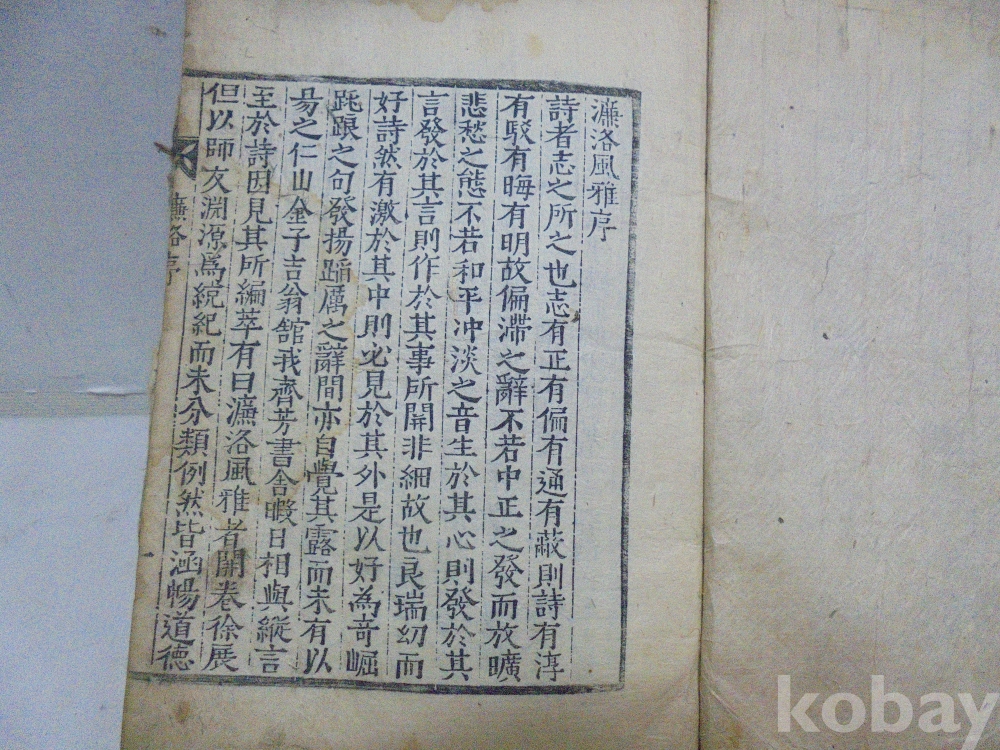 濂洛風雅序
詩者志之所之也志有正有偏有通有蔽則詩有淳
有駁有晦有明故偏滯之辭不若中正之發而放曠
悲愁之態不若和平冲淡之音生於其心則發於其
言發於其言則作於其事所開非細故也良瑞幼而
好詩然有激於其中則必見於其外是以好為奇崛
跳踉之句發揚蹈厲之辭間亦自覺其露而未有以
易之仁山金子吉翁舘我齊芳書舎暇日相與縱言
至於詩因見其所編萃有曰濂洛風雅者開卷徐展
但以師友淵源爲統紀而未分類例然皆涵暢道德
濂洛序
一
kobay